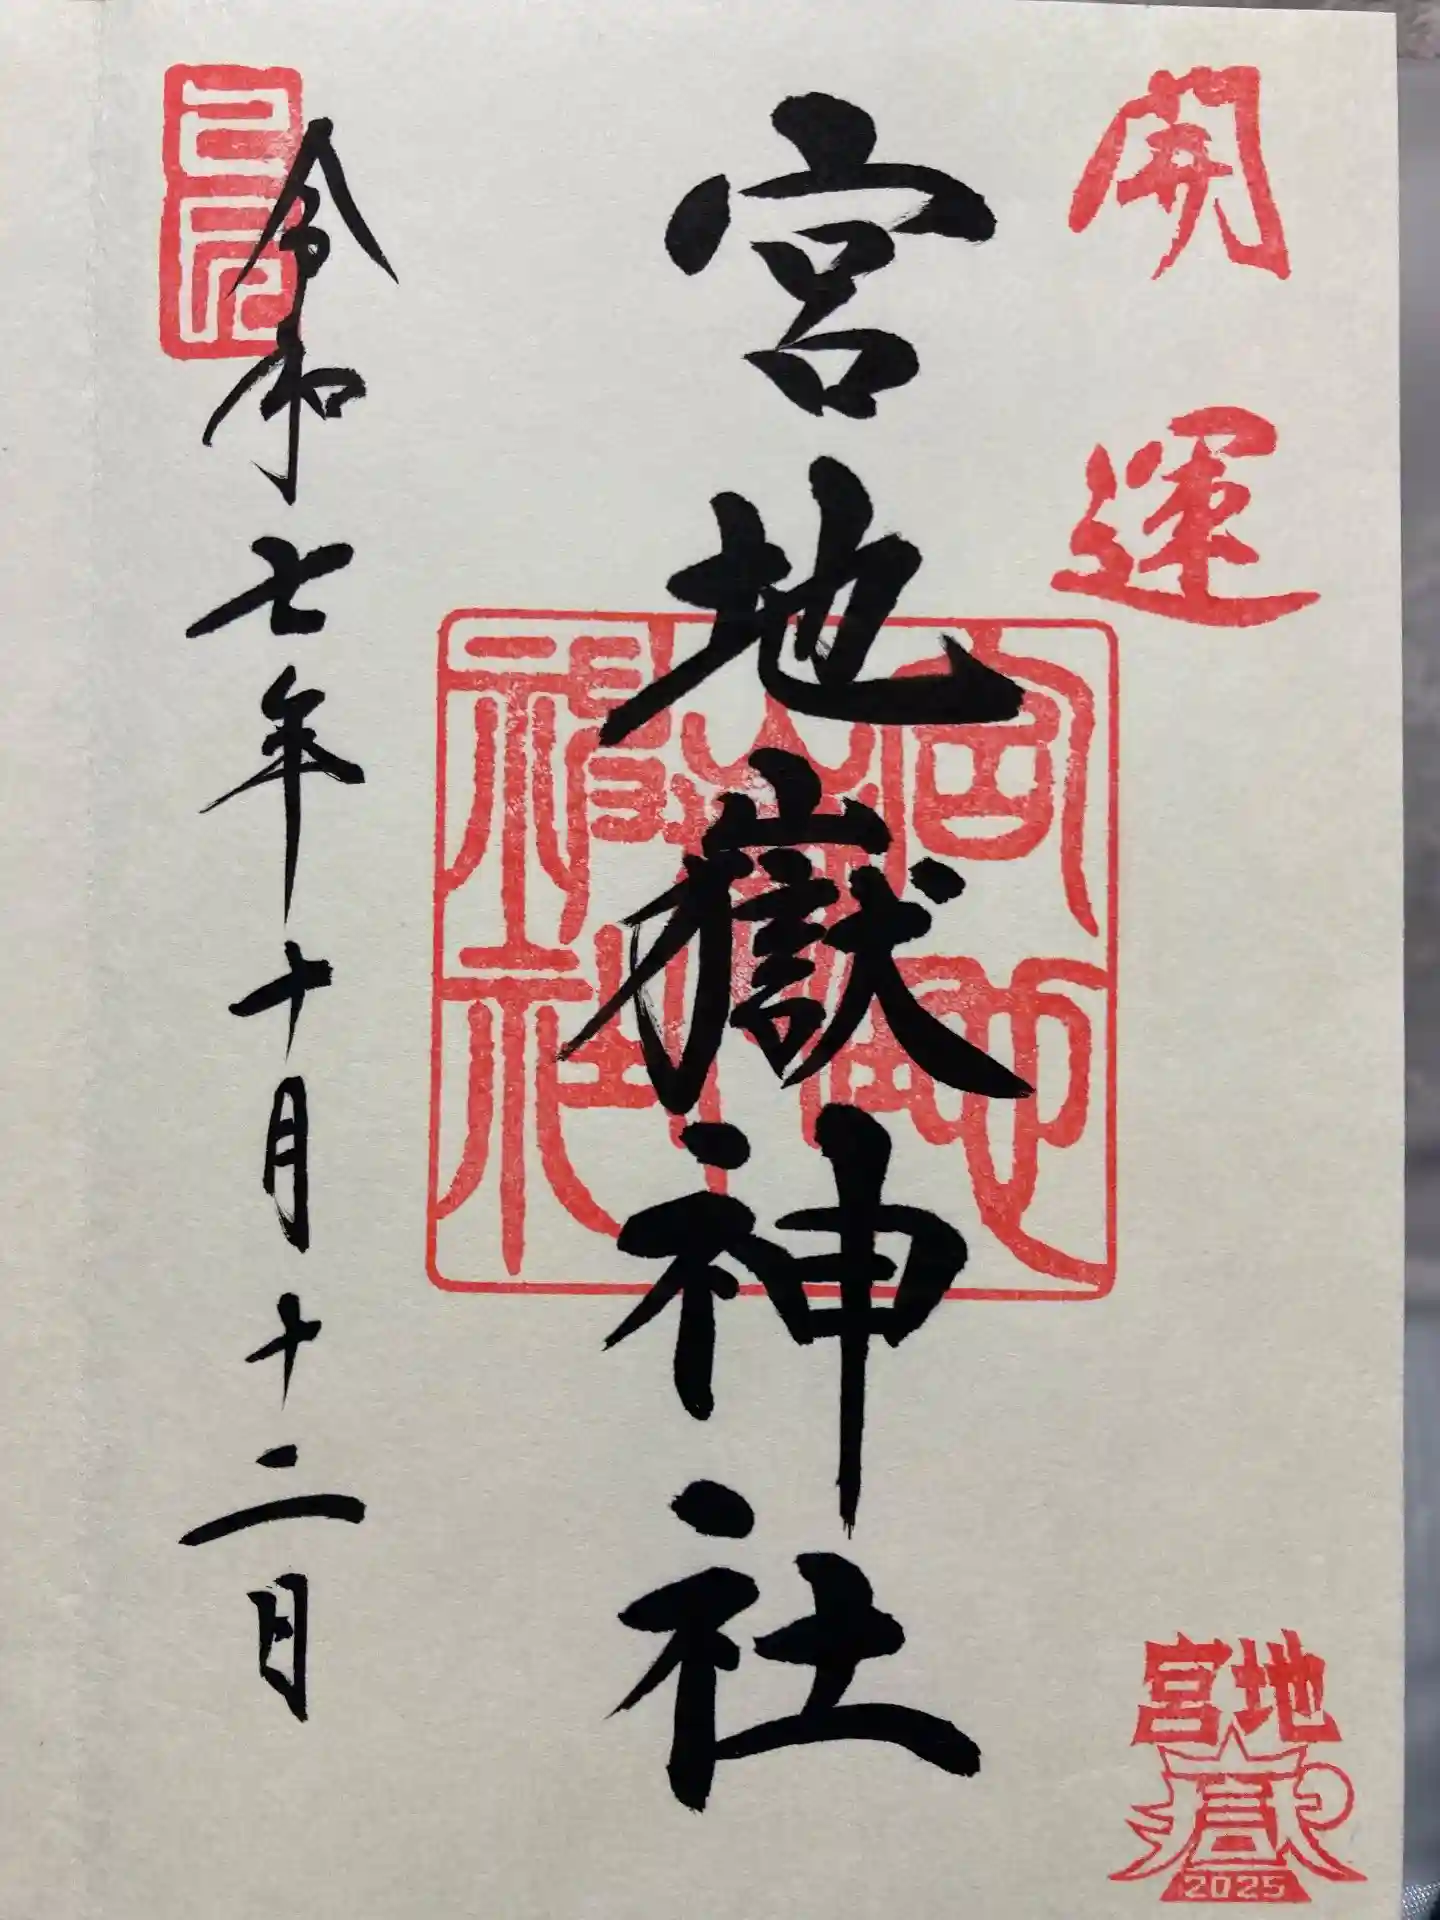 開運
宮地嶽神社
宮地
嶽神社
令和七年十月十二日
宮地
嶽
2025